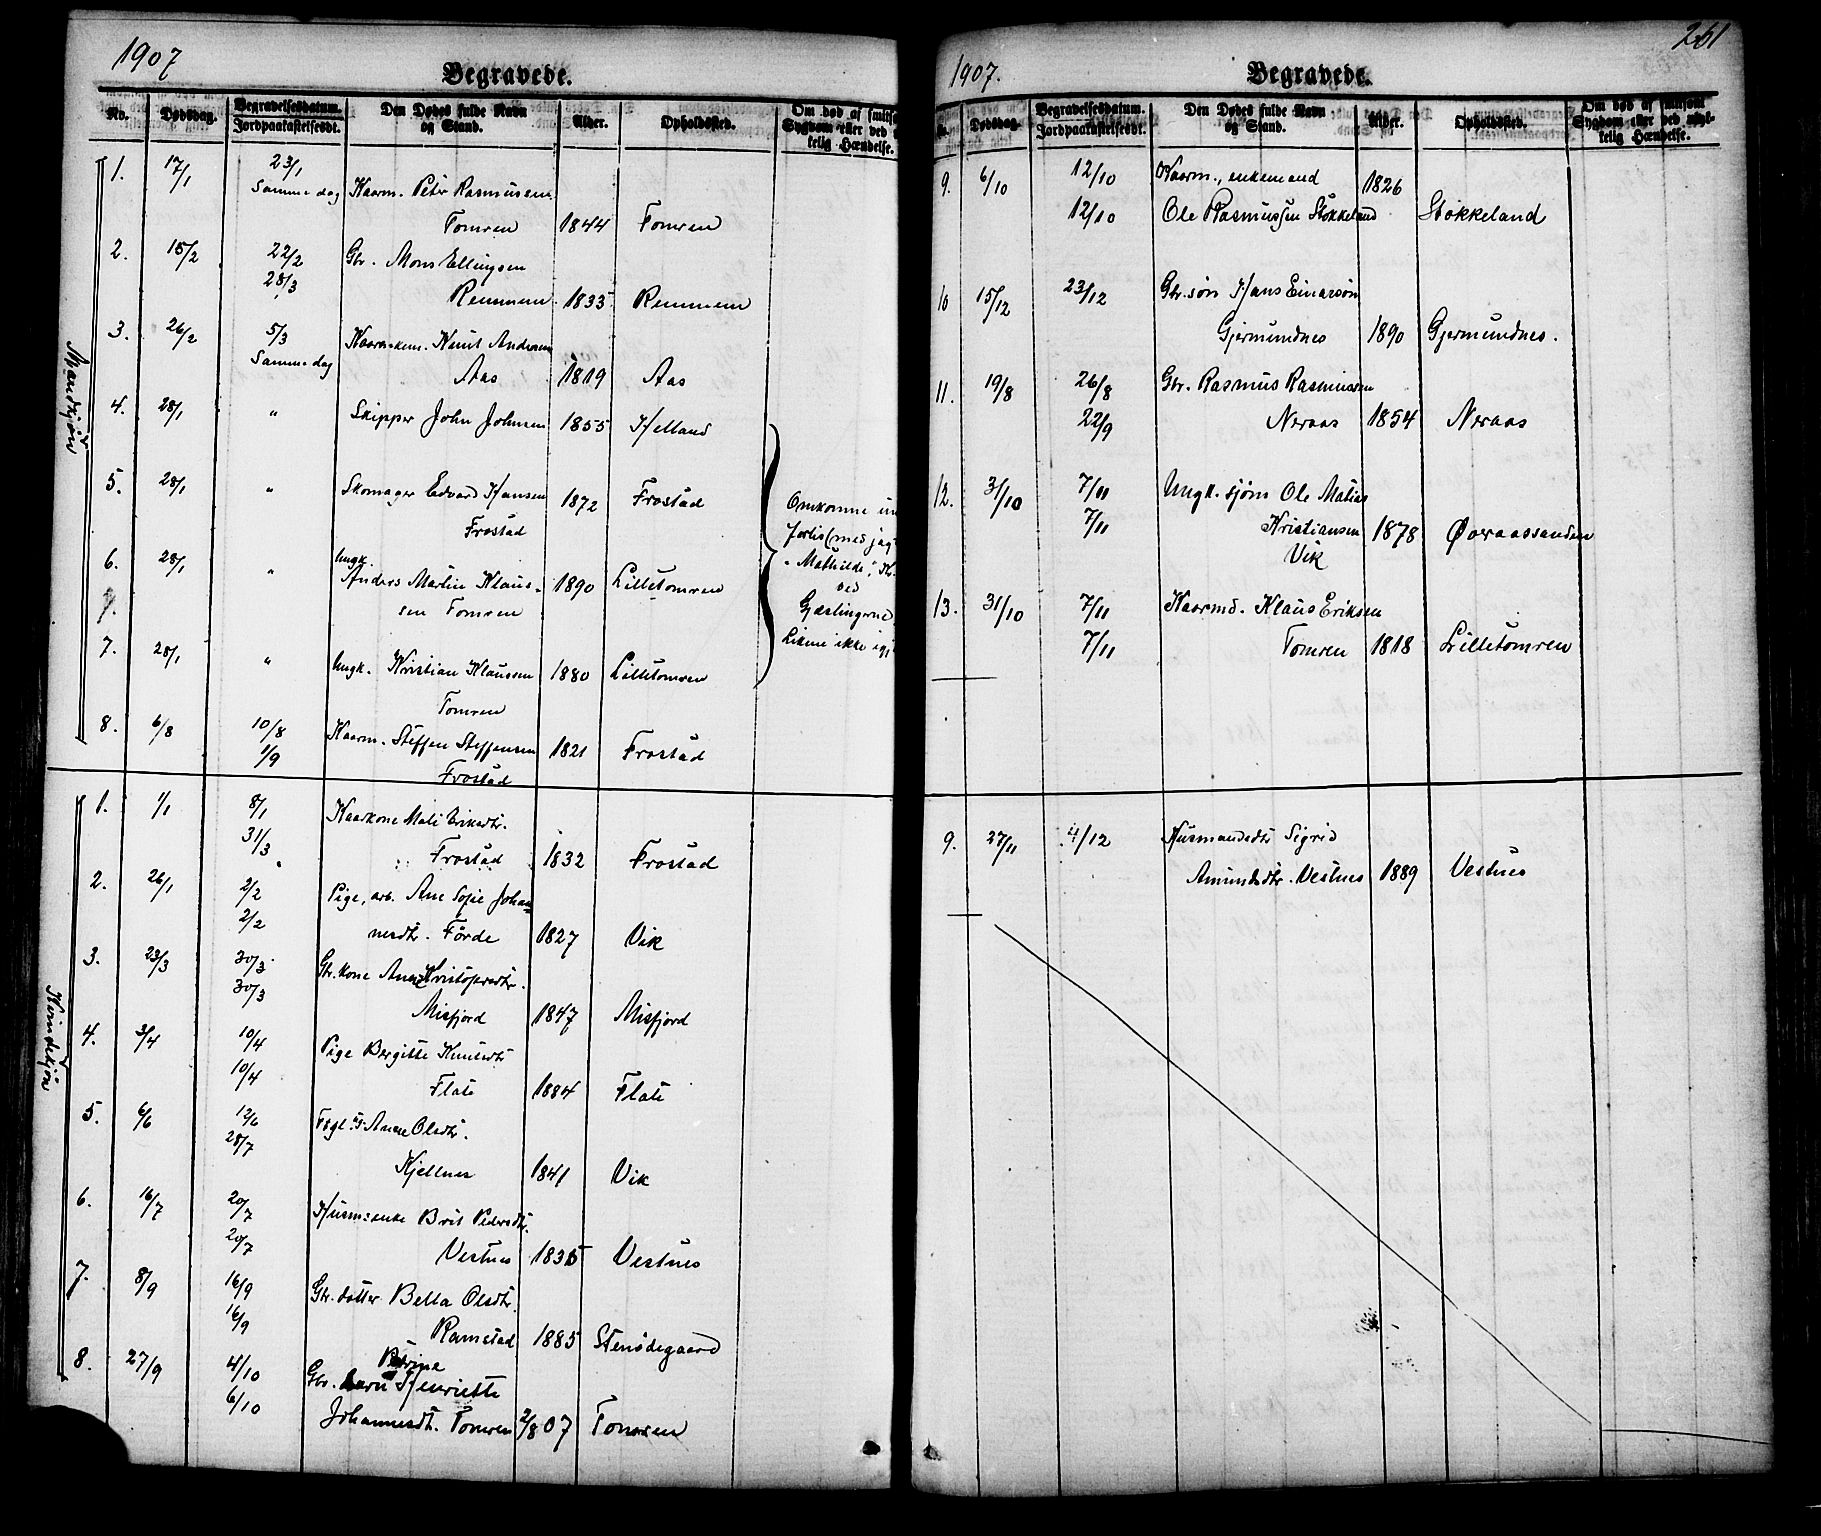 1907
Begravede.
No.
Dødsdag.
Begravelsesdatum.
Jordpaakastelsesdt.
Den Dødes fulde Navn
og Stand.
Alder.
Opholdssted.
Om død af smitso
Sygdom eller ved
kelig Hændelse.
Mandkjøn
1. 17/1 23/1
Samme dag Kaarm. Peter Rasmussen
Tomren 1844 Tomren
2. 15/2 22/2 Gbr. Mons Ellingsen
28/3 Remmem 1835 Remmem
3. 26/2 5/3 Kaarmskem. Knut Andersen
Samme dag Aas 1819 Aas
4. 28/1 " Skipper John Johnsen 1855 Helland
5. 28/1 " Skomager Edvard Hansen 1872 Frostad
Frostad
6. 28/1 " Ungk.
Anders Martin Klaus- 1890 Lilletomren
sen Tomren
7. 28/1 " Ungk. Kristian Klaussen 1880 Lilletomren
Tomren
Omkomne un
forlis (med jag
"Mathilde",
ved
Gæslingerne
Likene ikke
8. 6/8 10/8 Kaarm. Steffen Steffensen 1821 Frostad
1/9 Frostad
Kvindekjøn
1. 1/1 8/1 Kaarkone Mali Eriksdtr.
31/3 Frostad 1832 Frostad
2. 26/1 2/2 Pige, arb. Ane Sofie Johan-
2/2 nesdtr. Förde 1827 Vik
3. 23/3 30/3 Gbr. kone Ane Kristofersdtr.
30/3 Misfjord 1847 Misfjord
4. 3/4 10/4 Pige Bergitte Knutsdtr
10/4 Flate 1884 Flate
5. 6/6 12/6 Anne Olsdtr.
28/7 Kjellnes 1841 Vik
6. 16/7 20/7 Husm:enke Brit Pedersdtr.
20/7 Vestnes 1835 Vestnes
7. 8/9 16/9 Gbr. datter Bella Olsdtr.
16/9 Ramstad 1885 Stensdegaard
8. 27/9 4/10 Gbr. barn Petrine Henriette
6/10 Johannesdt. Tomren 2/8 07 Tomren
1907.
Begravede.
261
Dødsdag.
Begravelsesdatum.
Jordpaakastelsesdt.
Den Dødes fulde Navn
og Stand.
Alder.
Opholdssted.
Om død af smitsom
Sygdom eller ved ulyk-
kelig Hændelse.
9. 6/10 12/10 Kaarm., enkemand 1826
12/10 Ole Rasmussen Stokkeland Stokkeland
10 15/12 23/12 Gbr. søn Hans Einarsøn
Gjermundnes 1890 Gjermundnes.
11. 19/8 26/8 Gbr. Rasmus Rasmussen
22/9 Neraas 1854 Neraas
12. 31/10 7/11 Ungk. sjøm Ole Matias
7/11 Kristiansen 1878 Øveraassanden
Vik
13. 31/10 7/11 Kaarmd. Klaus Eriksen
7/11 Tomren 1818 Lilletomren
9. 27/11 4/12 Husmandsdtr Sigrid
Amundsdtr. Vestnes 1889 Vestnes